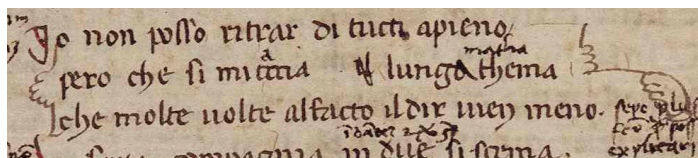 Io non posso ritrar di tucti apieno
pero che si mi caccia il lungo thema
che molte uolte al facto il dir uien meno.
compagnia in due si scema